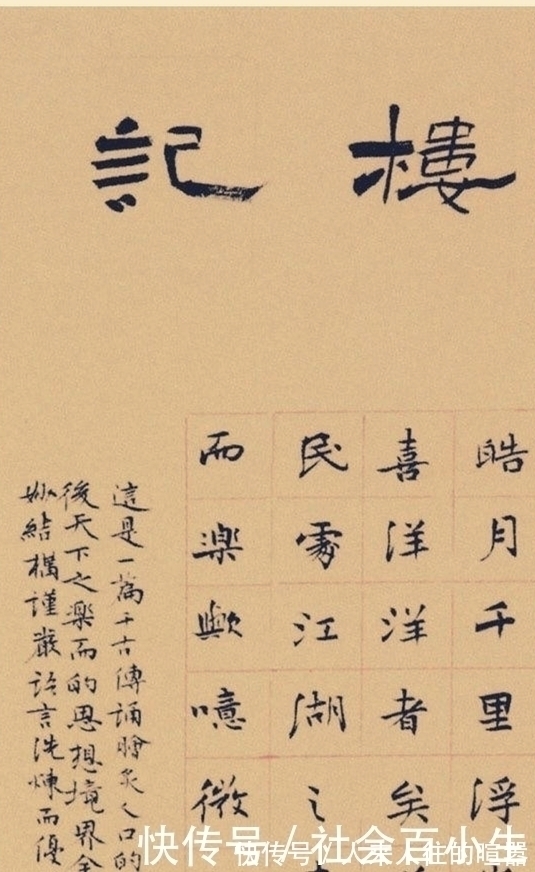 樓記
皓月千里浮
喜洋洋者矣
民處江湖之
而樂歟噫微
這是一篇千古傳誦膾炙人口的
後天下之樂而的思想境界全
妙結構謹嚴語言洗煉而優
快传号/社会百小生
快传号/人来人往的喧嚣